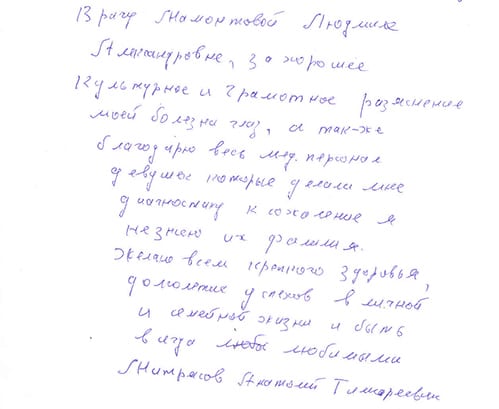 Врачу Мамонтовой Людмиле
Александровне, за хорошее
Культурное и Грамотное разяснение
моей болезни глаз, а так-же
благодарю весь мед. персонал
девушес которые делали мне
диагностику к сожалению я
незнаю их фамилия.
Желаю всем крепкого здоровья,
долголетие успехов в личной
и семейной жизни и быть
всегда любимыми
Анатолий